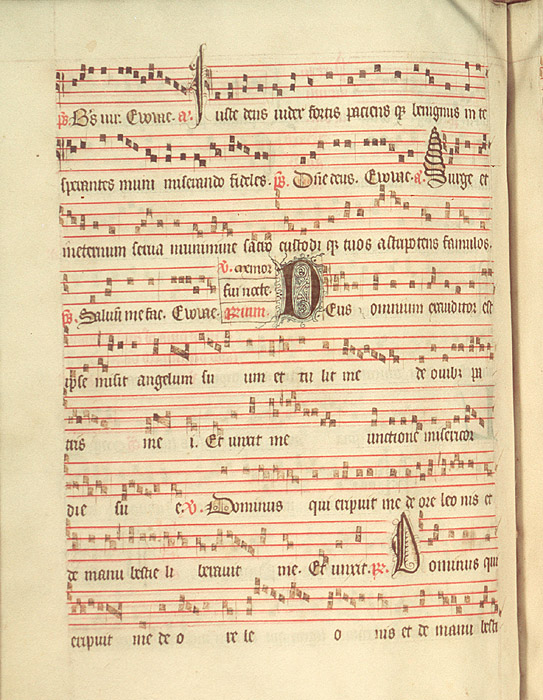 ps. Bs vir. Evovae. a. Iuste deus iudex fortis paciens que benignus in te
sperantes muni miserando fideles. ps. Dne deus. Evovae. a. Surge et
in eternum serva munimine sacro custodi que tuos astripotens famulos.
v. memor
ps. Salvum me fac. Evovae. fui nocte. primum. Deus omnium exauditor est
ipse misit angelum su um et tu lit me de ovibz pa
tris me i. Et unxit me unctione misericor
die su e. v. Dominus qui eripuit me de ore leo nis et
de manu bestie li beravit me. Et unxit. R. Dominus qui
eripuit me de o re le o nis et de manu besti